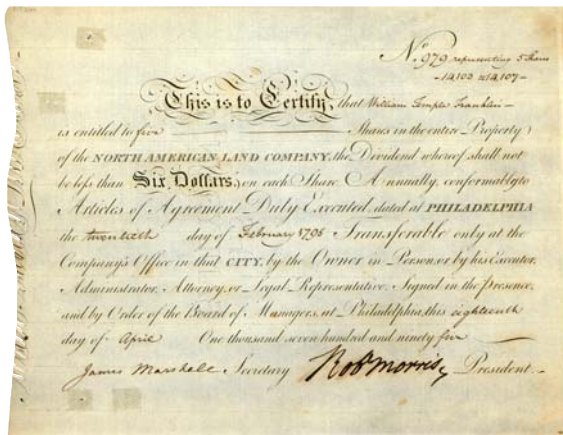 No. 979 representing 5 Shares
- 14,103 to 14,107 -
This is to Certify, that William Temple Franklin -
is entitled to five Shares in the entire Property
of the NORTH AMERICAN LAND COMPANY, the Dividend whereof shall not
be less than Six Dollars, on each Share Annually, conformably to
Articles of Agreement Duly Executed, dated at PHILADELPHIA
the twentieth day of February 1795 Transferable only at the
Company's Office in that CITY, by the Owner in Person, or by his Executor,
Administrator, Attorney, or Legal Representative. Signed in the Presence,
and by Order of the Board of Managers, at Philadelphia, this eighteenth
day of April One thousand seven hundred and ninety five
James Marshall Secretary Rob Morris President.